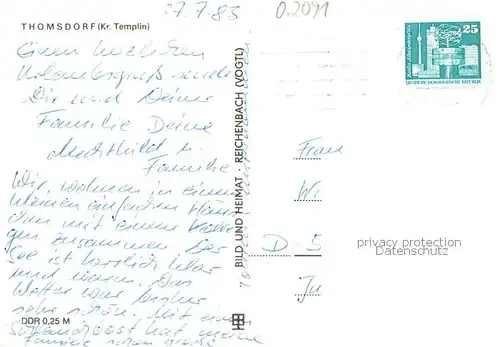 27.7.83
0.2091
THOMSDORF (Kr. Templin)
Einen herzlichen
Urlaubsgruß sendet
Dir und Deiner
Familie Deine
Mechthild u.
Familie
Wir wohnen in einem
kleinen einfachen Häus
chen mit einem
zusammen Der
See ist herrlich klar
und warm. Das
Wetter war bisher
sehr schön. Mit einem
hat meine
Familie schon große
DDR 0,25 M
BILD UND HEIMAT REICHENBACH (VOGTL)
25
DEUTSCHE DEMOKRATISCHE REPUBLIK
Frau
W.
D-5
Ju
privacy protection
Datenschutz